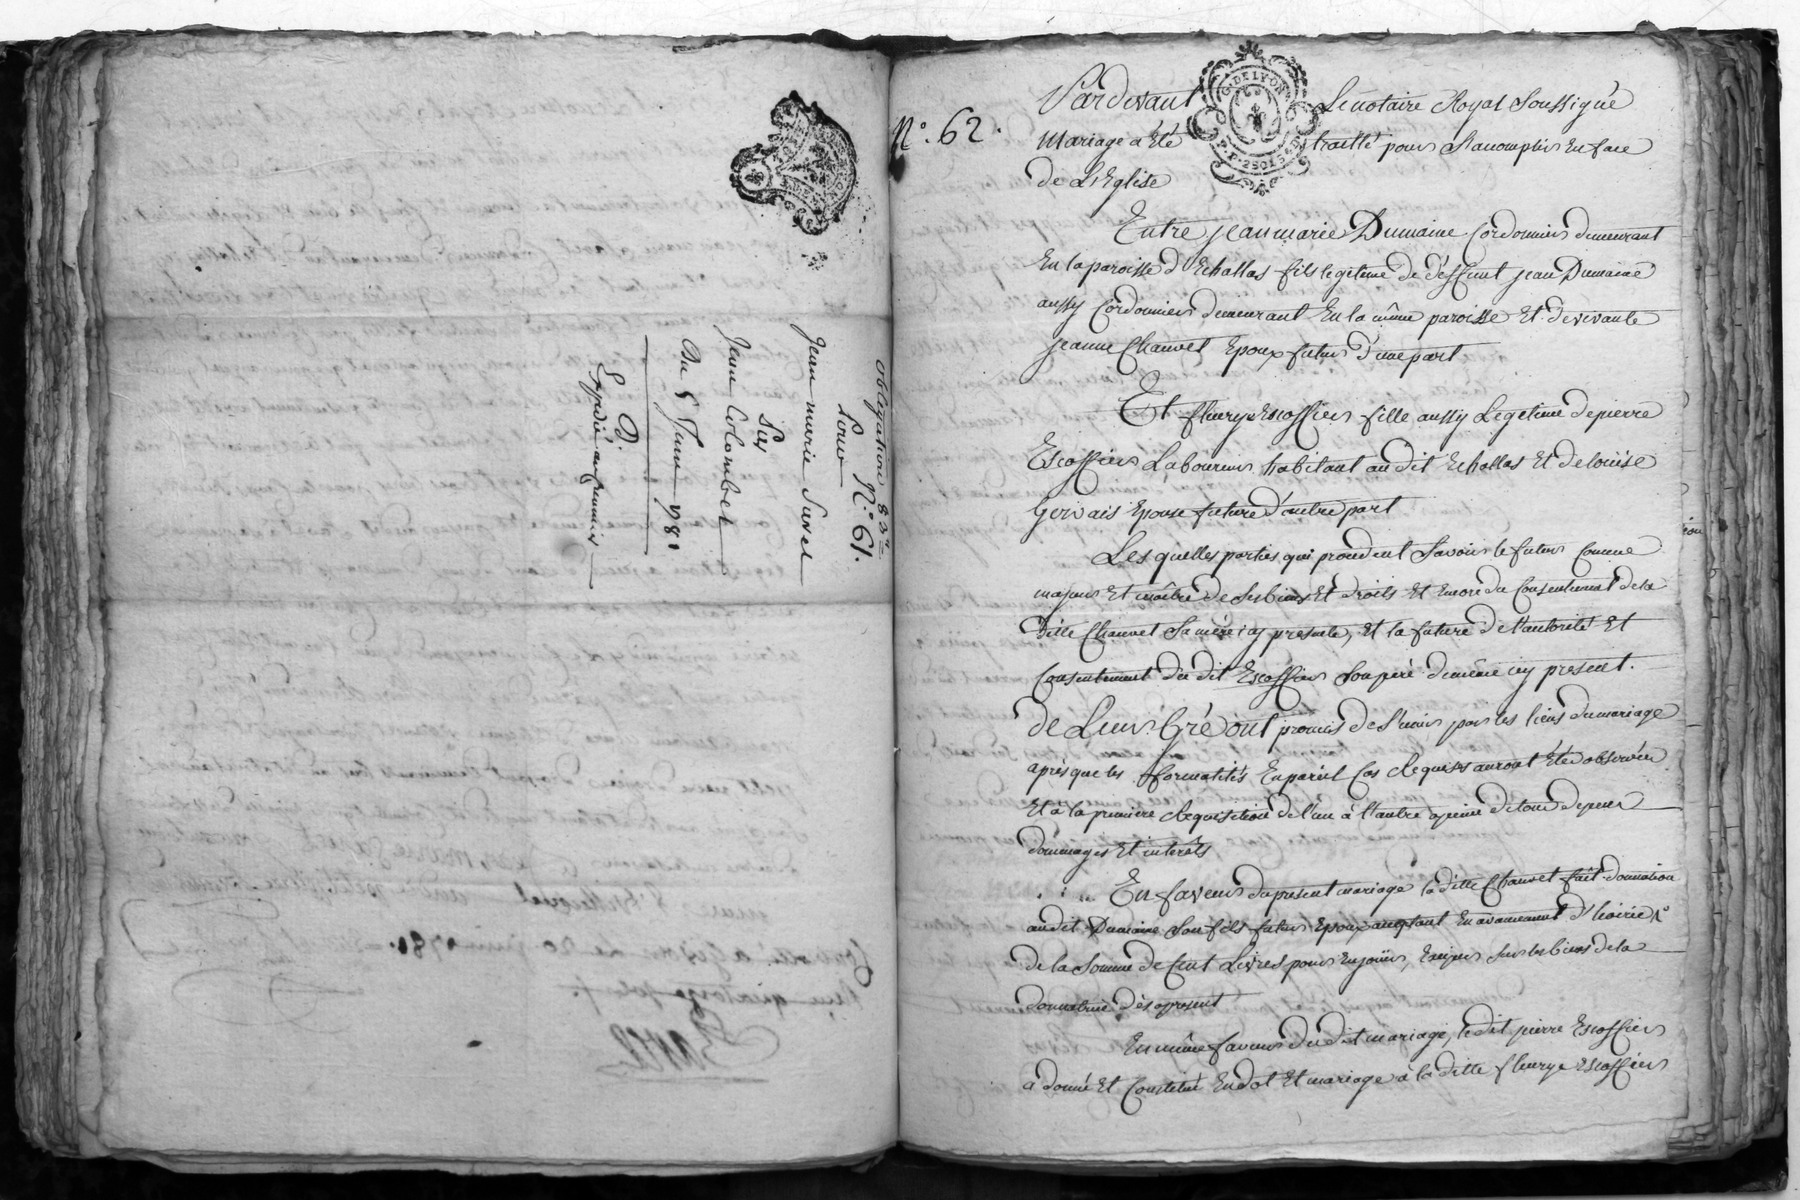 obligation 83#
N.° 61.
Pour
Jean marie Survel
Sur
Jean Colombet
Du 5 Juin 1781
D.
Expédié
Controllé a Givors le 20 juin 1781
Reçu quatorze sols f.
N.° 62.
G. DE LYON
Pardevant Le notaire Royal Soussigné
Mariage a Eté traitté pour S'accomplir En face
de L'Eglise
Entre jean marie Dumaine Cordonnier demeurant
En la paroisse d'Echallas fils legitime de déffunt jean Dumaine
aussy Cordonnier demeurant En la même paroisse Et de vivante
jeanne Chauvet Epoux futur d'une part
Et fleurye Escoffier fille aussy Legitime de pierre
Escoffier Laboureur habitant au dit Echallas Et de loüise
Gervais Epouse future d'autre part
Les quelles parties qui procedent Savoir le futur Comme
majeur Et maître de Ses biens Et droits Et Encore du Consentement de la
ditte Chauvet Sa mère icy presente, Et la future de l'autorité Et
Consentement du dit Escoffier Son père de même icy present.
de Leur Gré ont promis de S'unir par les liens du mariage
après que les formalités En pareil Cas Requises auront été observées
Et à la première Requisition de l'un à l'autre a peine de tous depens
dommages Et interêts
En faveur du present mariage la ditte Chauvet fait donnation
au dit Dumaine Son fils futur Epoux acceptant En avancement d'hoirie
de la Somme de Cent Livres pour En joüir, Exiger Sur les biens de la
donnatrice dès apresent
En même faveur du dit mariage, le dit pierre Escoffier
a donné Et Constitué En dot Et mariage à la ditte fleurye Escoffier